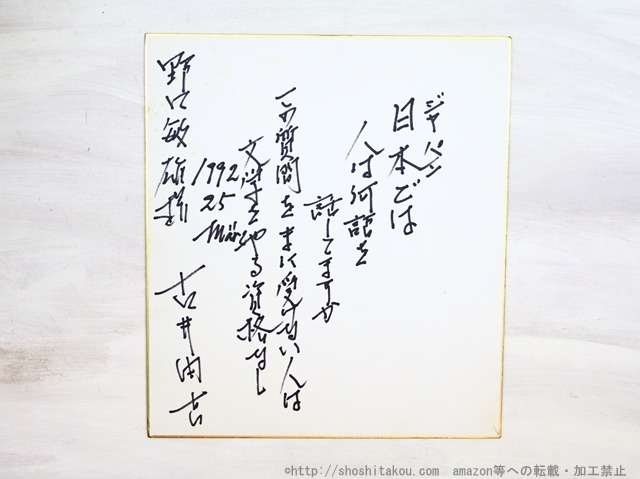 ジャパン
日本では
人は何語を
話してますか
この質問をまに受けない人は
文学をやる資格なし
1992
25
Mär
野口敏雄様
古井由吉
©http://shoshitakou.com amazon等への転載・加工禁止